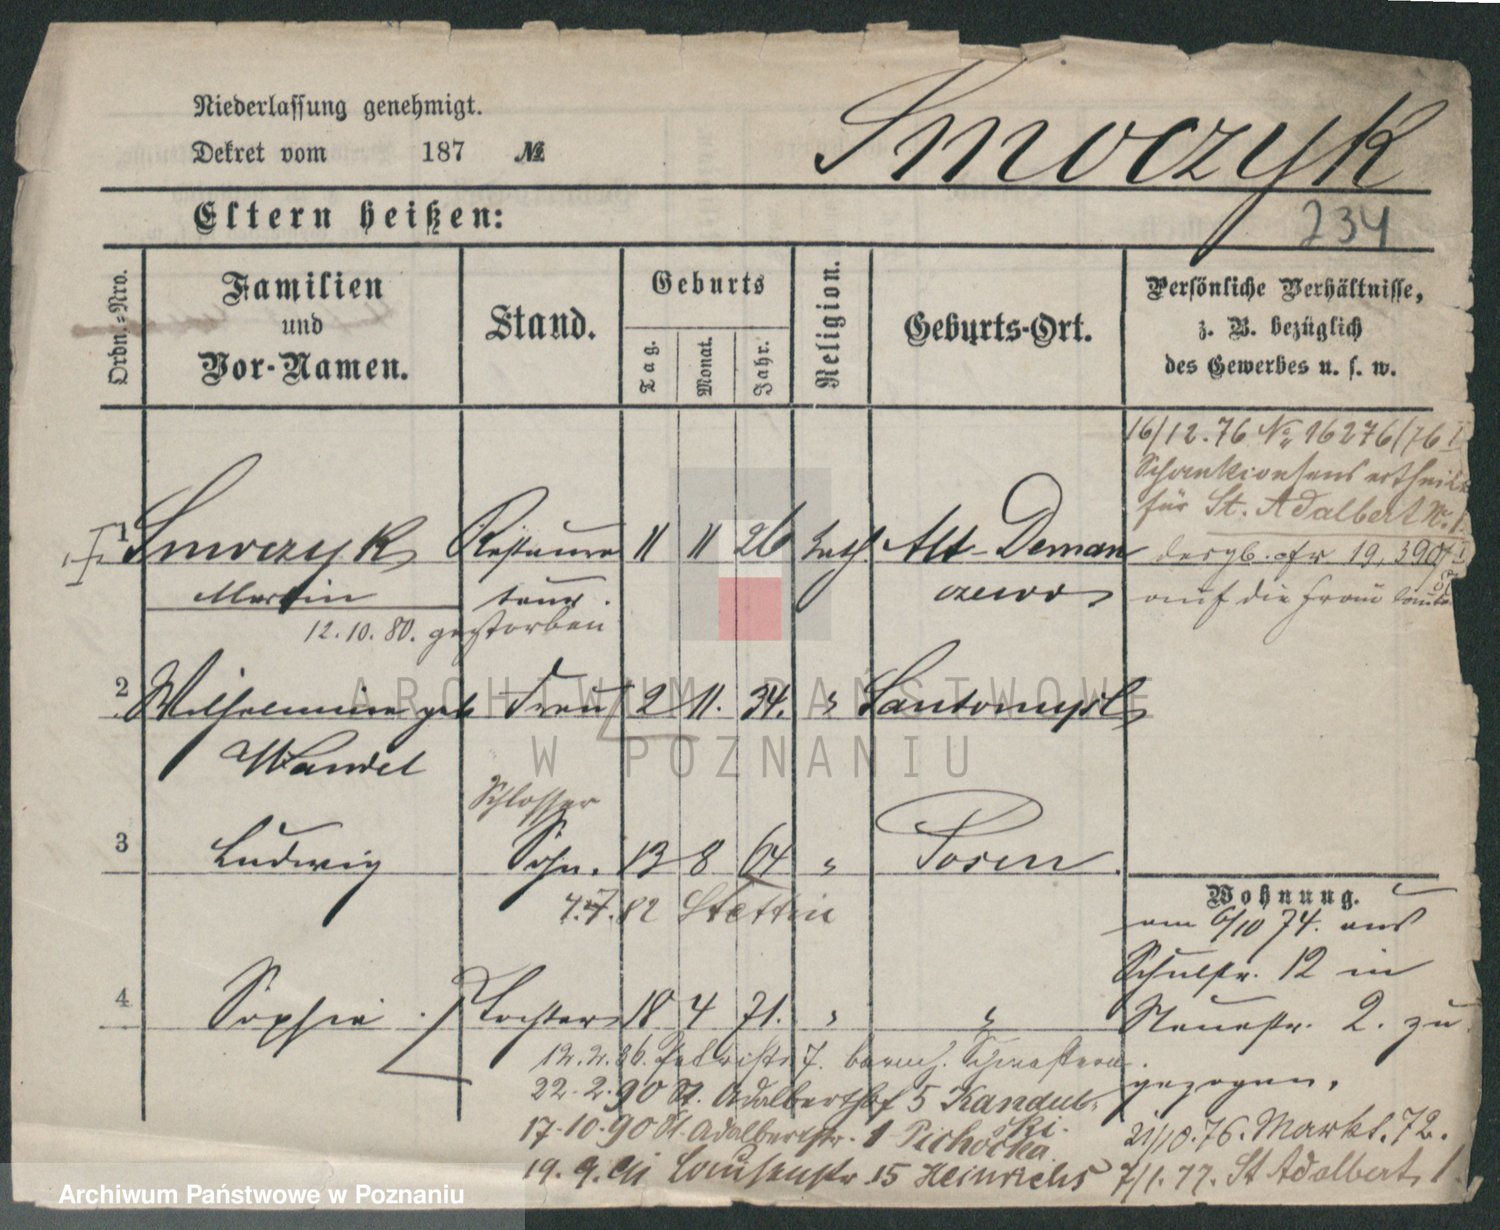 Niederlassung genehmigt.
Dekret vom 187 №
Smoczyk
Eltern heißen:
234
Ordn.-Nro.
Familien und Vor-Namen.
Stand.
Geburts
Tag.
Monat.
Jahr.
Religion.
Geburts-Ort.
Persönliche Verhältnisse,
z. B. bezüglich
des Gewerbes u. s. w.
16/12.76 No 16276/76 I
Schankconsens ertheilt
für St. Adalbert N. 1.
1 Smoczyk Restaura 11 11 26 kath. Alt-Deman
Martin teur. czewo
desgl. 19,390
auf die Frau
12.10.80. gestorben
2 Wilhelmine geb Frau 2 11. 34. " Santomysl
Wandel
Schlosser
3 Ludwig Sohn. 13 8 64 " Posen
7.7.82 Stettin
Wohnung.
am 6/10 74. aus
Schulstr. 12 in
Neuestr. 2. zu
gezogen.
4 Sophie Tochter 18 4 71. " "
12.2.86. 7. barmh. Schwestern
22.2.90 St. Adalberthof 5 Kandul-
ski.
17.10.90 St. Adalbertstr. 1 Pichocka
21/10.76. Markt. 72.
19.9. 15 Heinrichs
7/1.77. St Adalbert 1
ARCHIWUM PAŃSTWOWE
W POZNANIU
Archiwum Państwowe w Poznaniu